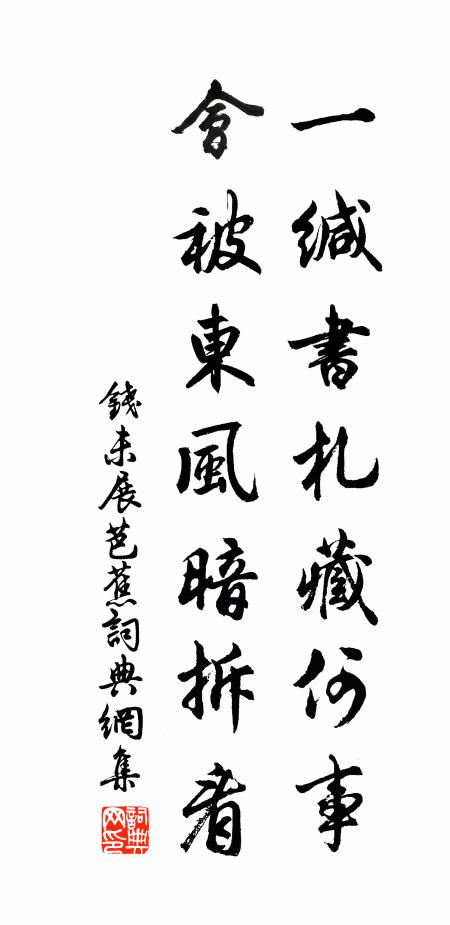 一緘書札藏何事
會被東風暗拆看
錢未展芭蕉詞典網集
詞典网印